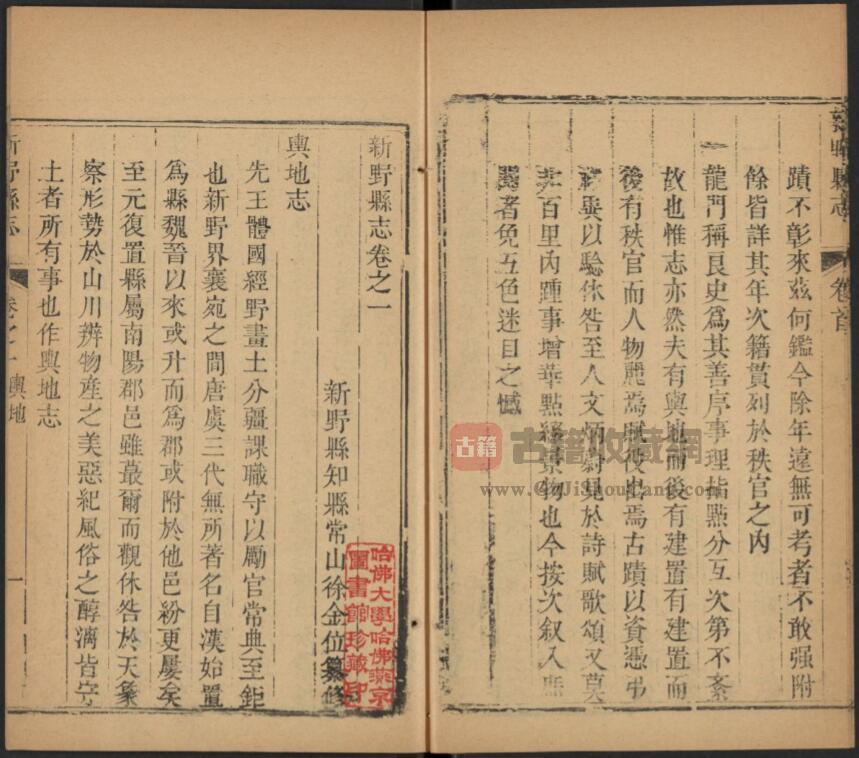 新野縣志
卷首
蹟不彰來茲何鑑今除年遠無可考者不敢强附
餘皆詳其年次籍貫列於秩官之內
一龍門稱良史爲其善序事理指㸃分互次第不紊
故也惟志亦然夫有輿地而後有建置有建置而
後有秩官而人物麗焉賦役出焉古蹟以資憑弔
祥異以驗休咎至人文炳蔚見於詩賦歌頌又莫
非百里內踵事增華點綴景物也今按次叙入
覽者免五色迷目之憾
新野縣志卷之一
新野縣知縣常山徐金位纂修
輿地志
先王體國經野畫土分疆課職守以勵官常典至鉅
也新野界襄宛之間唐虞三代無所著名自漢始置
爲縣魏晉以來或升而爲郡或附於他邑紛更屢矣
至元復置縣屬南陽郡邑雖蕞爾而觀休咎於天象
察形勢於山川辨物產之美惡紀風俗之醇漓皆守
土者所有事也作輿地志
新野縣志
卷之一輿地
一
哈佛大學哈佛燕京圖書館珍藏印
古籍
古籍收藏網
www.GuJiShouCang.com